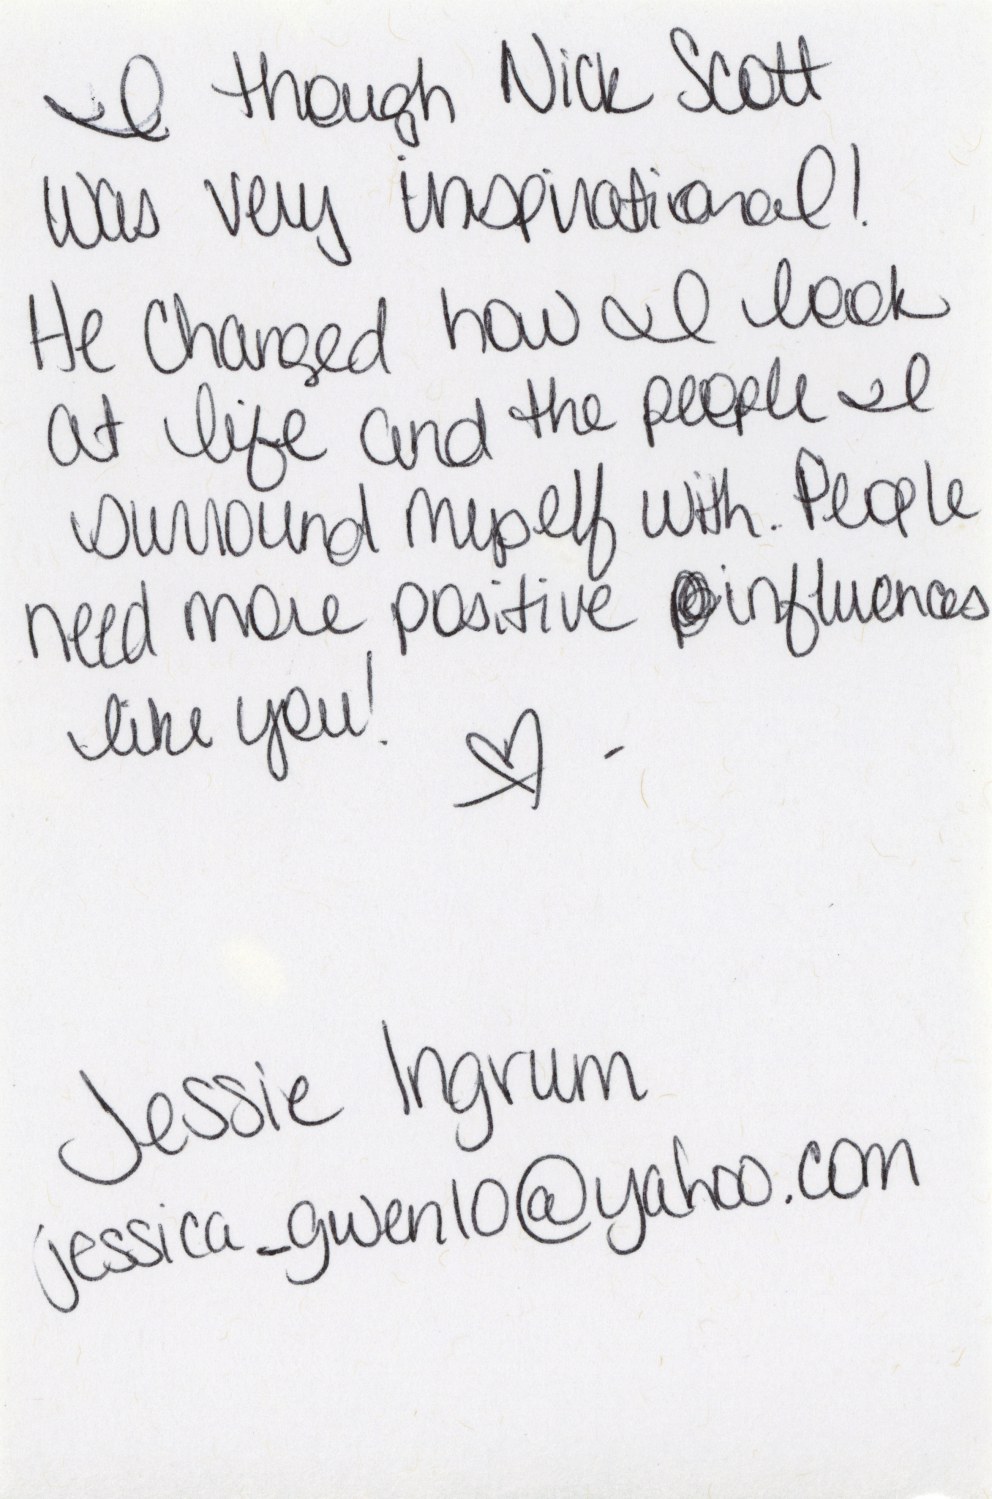 I though Nick Scott
was very inspirational!
He changed how I look
at life and the people I
surround myself with. People
need more positive influences
like you! ♡ -
Jessie Ingrum
jessica_gwen10@yahoo.com